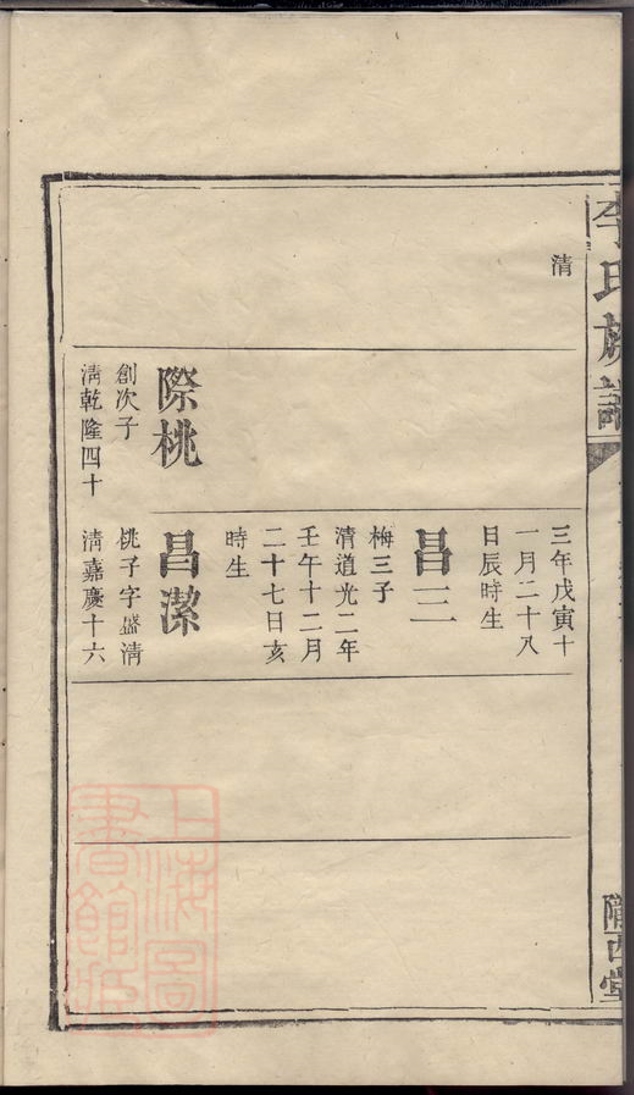 李氏族譜
隴西堂
清
三年戊寅十
一月二十八
日辰時生
昌三
梅三子
清道光二年
壬午十二月
二十七日亥
時生
際桃
創次子
清乾隆四十
昌潔
桃子字盛清
清嘉慶十六
上海圖
書館藏